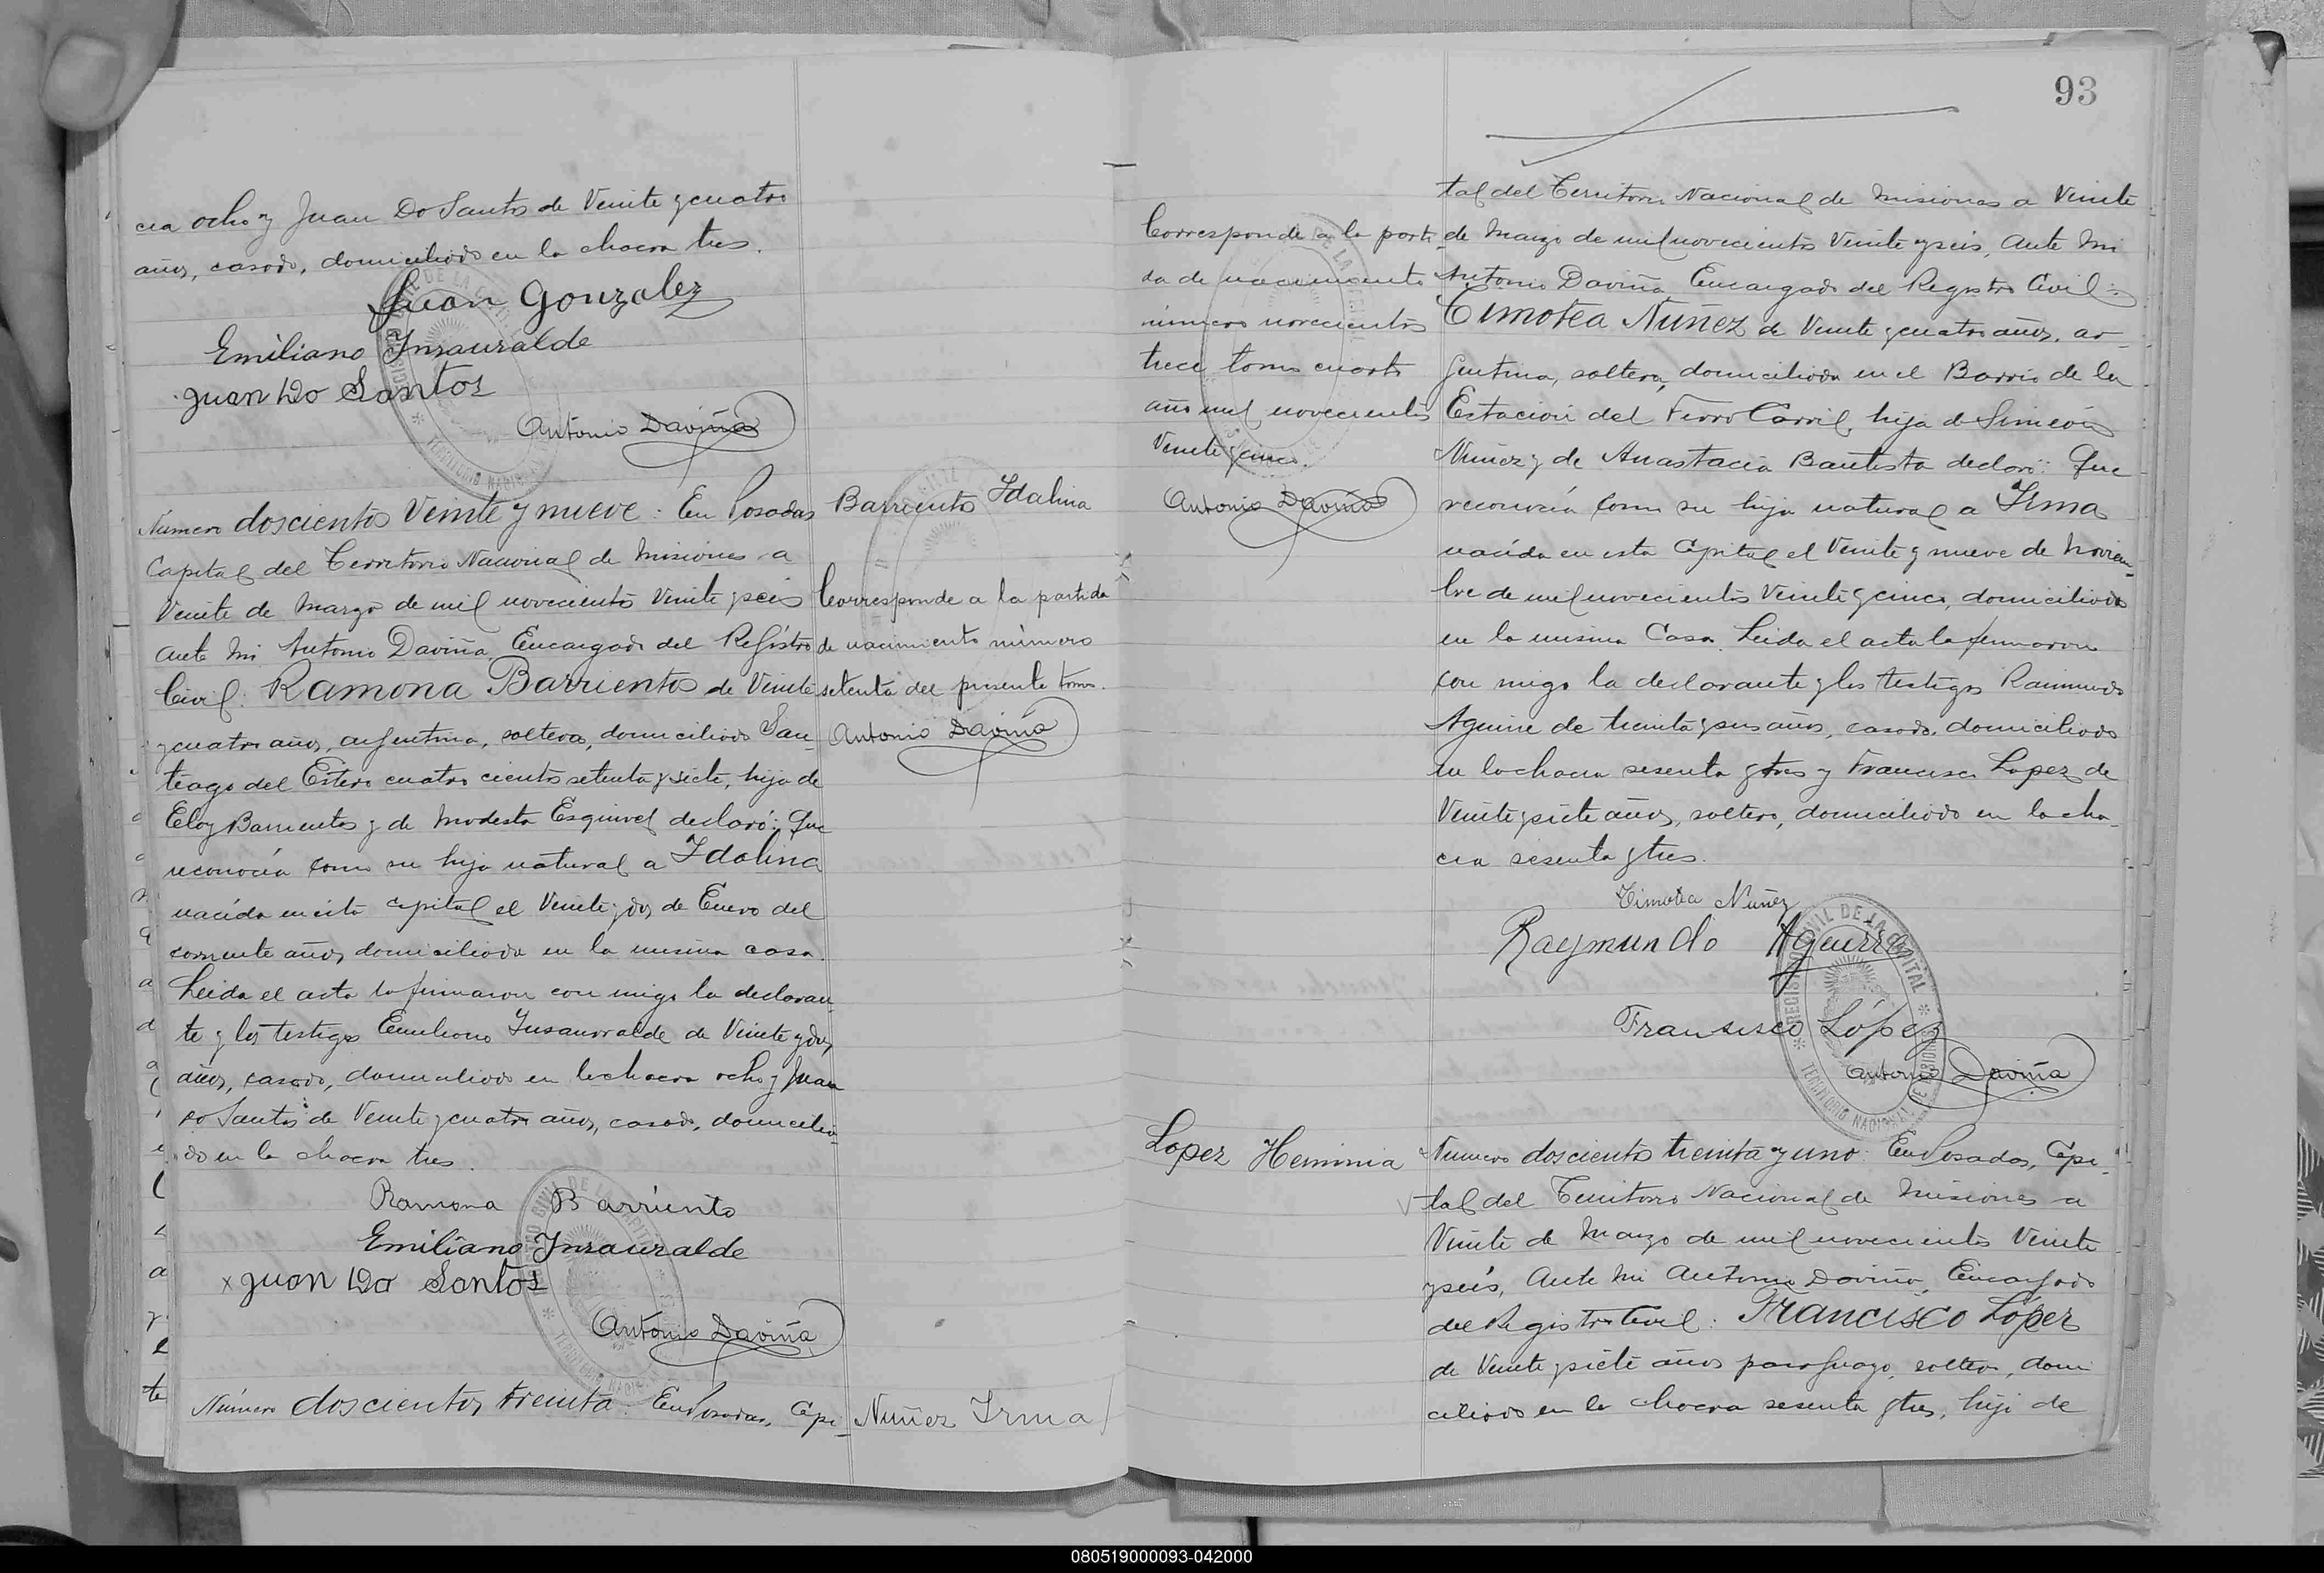 cra ocho y Juan Do Santos de Veinte y cuatro
años, casado, domiciliado en la chacra tres.
Juan Gonzalez
Emiliano Insauralde
Juan Do Santos
Antonio Daviña
Número doscientos Veinte y nueve: En Posadas
Capital del Territorio Nacional de Misiones a
Veinte de Marzo de mil novecientos Veinte y seis
ante mi Antonio Daviña Encargado del Registro
Civil: Ramona Barrientos de Veinte
y cuatro años, argentina, soltera, domiciliada San-
tiago del Estero cuatro cientos setenta y siete, hija de
Eloy Barrientos y de Modesta Esquivel declaró: Que
reconocía como su hija natural a Idalina
nacida en esta capital el Veinte y dos de Enero del
corriente año, domiciliada en la misma casa.
Leida el acta la firmaron con migo la declaran-
te y los testigos Emiliano Insaurralde de Veinte y dos
años, casado, domiciliado en la chacra ocho y Juan
Do Santos de Veinte y cuatro años, casado, domicilia-
do en la chacra tres.
Ramona Barriento
Emiliano Insauralde
x Juan Do Santos
Antonio Daviña
Número doscientos treinta: En Posadas, Capi-
Barriento Idalina
Corresponde a la partida
de nacimiento número
setenta del presente tomo.
Antonio Daviña
Nuñez Irma
93
Corresponde a la parti-
da de nacimiento
número novecientos
trece tomo cuarto
año mil novecientos
Veinte y cinco.
Antonio Daviña
tal del Territorio Nacional de Misiones a Veinte
de Marzo de mil novecientos Veinte y seis, Ante Mi
Antonio Daviña Encargado del Registro Civil:
Timotea Nuñez de Veinte y cuatro años, ar-
gentina, soltera, domiciliada en el Barrio de la
Estación del Ferro Carril, hija de Simeón
Nuñez y de Anastacia Bautista declaró: Que
reconocía como su hija natural a Irma
nacida en esta Capital el Veinte y nueve de Noviem-
bre de mil novecientos Veinte y cinco, domiciliada
en la misma Casa. Leida el acta la firmaron
con migo la declarante y los testigos Raimundo
Aguirre de treinta y seis años, casado, domiciliado
en la chacra sesenta y tres y Francisco Lopez de
Veinte y siete años, soltero, domiciliado en la cha-
cra sesenta y tres.
Timotea Nuñez
Raymundo Aguirre
Fransisco López
Antonio Daviña
REGISTRO CIVIL DE LA CAPITAL
TERRITORIO NACIONAL DE MISIONES
Lopez Herminia
Número doscientos treinta y uno: En Posadas, Capi-
tal del Territorio Nacional de Misiones a
Veinte de Marzo de mil novecientos Veinte
y seis, Ante Mi Antonio Daviña, Encargado
del Registro Civil: Francisco López
de Veinte y siete años paraguayo, soltero, domi
ciliado en la chacra sesenta y tres, hijo de
080519000093-042000